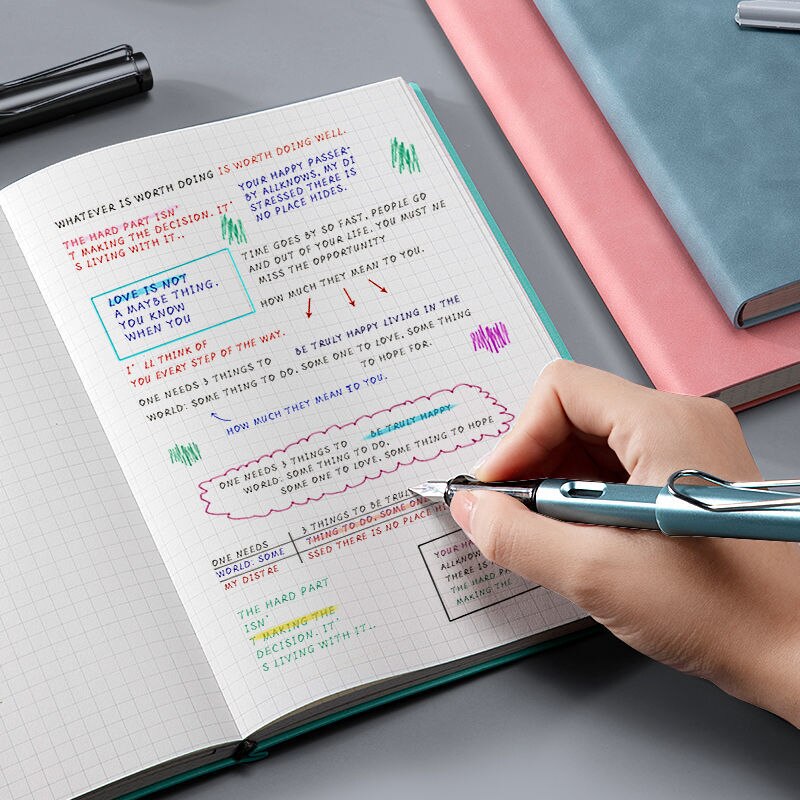 WHATEVER IS WORTH DOING IS WORTH DOING WELL.
THE HARD PART ISN'
T MAKING THE DECISION. IT'
S LIVING WITH IT..
YOUR HAPPY PASSER-
BY ALLKNOWS, MY DI
STRESSED THERE IS
NO PLACE HIDES.
TIME GOES BY SO FAST, PEOPLE GO
AND OUT OF YOUR LIFE. YOU MUST NE
MISS THE OPPORTUNITY
HOW MUCH THEY MEAN TO YOU.
LOVE IS NOT
A MAYBE THING.
YOU KNOW
WHEN YOU
I' LL THINK OF
YOU EVERY STEP OF THE WAY.
ONE NEEDS 3 THINGS TO BE TRULY HAPPY LIVING IN THE
WORLD: SOME THING TO DO. SOME ONE TO LOVE, SOME THING
TO HOPE FOR.
HOW MUCH THEY MEAN TO YOU.
ONE NEEDS 3 THINGS TO BE TRULY HAPPY
WORLD: SOME THING TO DO,
SOME ONE TO LOVE, SOME THING TO HOPE
ONE NEEDS 3 THINGS TO BE TRULY
WORLD: SOME THING TO DO, SOME ONE
MY DISTRE SSED THERE IS NO PLACE HI
YOUR HA
ALLKNOW
THERE IS
THE HARD PA
MAKING THE
THE HARD PART
ISN'
T MAKING THE
DECISION. IT'
S LIVING WITH IT..